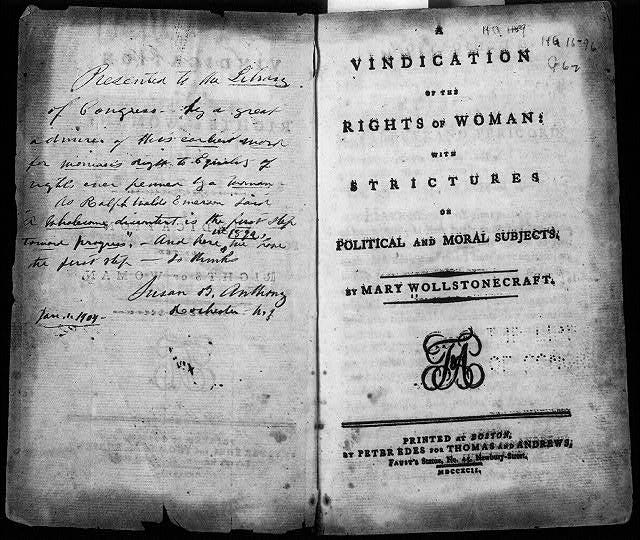 Presented to the Library
of Congress by a great
admirer of this earliest work
for woman's right to Equality of
rights ever penned by a woman.
As Ralph Waldo Emerson said
"A Wholesome discontent is the first step
toward progress". - And here, in 1892, we have
the first step - so thinks
Susan B. Anthony
Jan. 1. 1904 - Rochester - N.Y
A
VINDICATION
OF THE
RIGHTS OF WOMAN:
WITH
STRICTURES
ON
POLITICAL AND MORAL SUBJECTS.
BY MARY WOLLSTONECRAFT.
PRINTED AT BOSTON,
BY PETER EDES FOR THOMAS AND ANDREWS,
FAUST'S Statue, No. 45, Newbury-Street,
MDCCXCII.